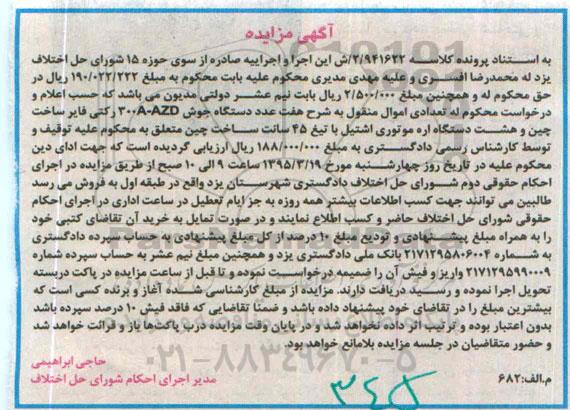 آگهی مزایده
به استناد پرونده کلاسه ۲/۹۴۱۶۲۲/ش این اجرا و اجراییه صادره از سوی حوزه ۱۵ شورای حل اختلاف
یزد له محمدرضا افسری و علیه مهدی مدیری محکوم علیه بابت محکوم به مبلغ ۱۹۰/۰۲۲/۲۲۲ ریال در
حق محکوم له و همچنین مبلغ ۲/۵۰۰/۰۰۰ ریال بابت نیم عشر دولتی مدیون می باشد که حسب اعلام و
درخواست محکوم له تعدادی اموال منقول به شرح هفت عدد دستگاه جوش ۳۰۰A-AZD رکتی فایر ساخت
چین و هشت دستگاه اره موتوری اشتیل با تیغ ۴۵ سانت ساخت چین متعلق به محکوم علیه توقیف و
توسط کارشناس رسمی دادگستری به مبلغ ۱۸۸/۰۰۰/۰۰۰ ریال ارزیابی گردیده است که جهت ادای دین
محکوم علیه در تاریخ روز چهارشنبه مورخ ۱۳۹۵/۳/۱۹ ساعت ۹ الی ۱۰ صبح از طریق مزایده در اجرای
احکام حقوقی دوم شورای حل اختلاف دادگستری شهرستان یزد واقع در طبقه اول به فروش می رسد
طالبین می توانند جهت کسب اطلاعات بیشتر همه روزه به جز ایام تعطیل در ساعت اداری در اجرای احکام
حقوقی شورای حل اختلاف حاضر و کسب اطلاع نمایند و در صورت تمایل به خرید آن تقاضای کتبی خود
را به همراه مبلغ پیشنهادی و تودیع مبلغ ۱۰ درصد از کل مبلغ پیشنهادی به حساب سپرده دادگستری
به شماره ۲۱۷۱۲۹۵۸۰۶۰۰۴ بانک ملی دادگستری یزد و همچنین مبلغ نیم عشر به حساب سپرده شماره
۲۱۷۱۲۹۵۹۹۰۰۰۹ واریز و فیش آن را ضمیمه درخواست نموده و تا قبل از ساعت مزایده در پاکت دربسته
تحویل اجرا نموده و رسید دریافت دارند. مزایده از مبلغ کارشناسی شده آغاز و برنده کسی است که
بیشترین مبلغ را در تقاضای خود پیشنهاد داده باشد و ضمنا تقاضایی که فاقد فیش ۱۰ درصد سپرده باشد
بدون اعتبار بوده و ترتیب اثر داده نخواهد شد و در پایان وقت مزایده درب پاکت‌ها باز و قرائت خواهد شد
و حضور متقاضیان در جلسه مزایده بلامانع خواهد بود.
حاجی ابراهیمی
م.الف: ۶۸۲ مدیر اجرای احکام شورای حل اختلاف
۰۲۱-۸۸۳۴۹۶۷۰-۵
۳۴۵